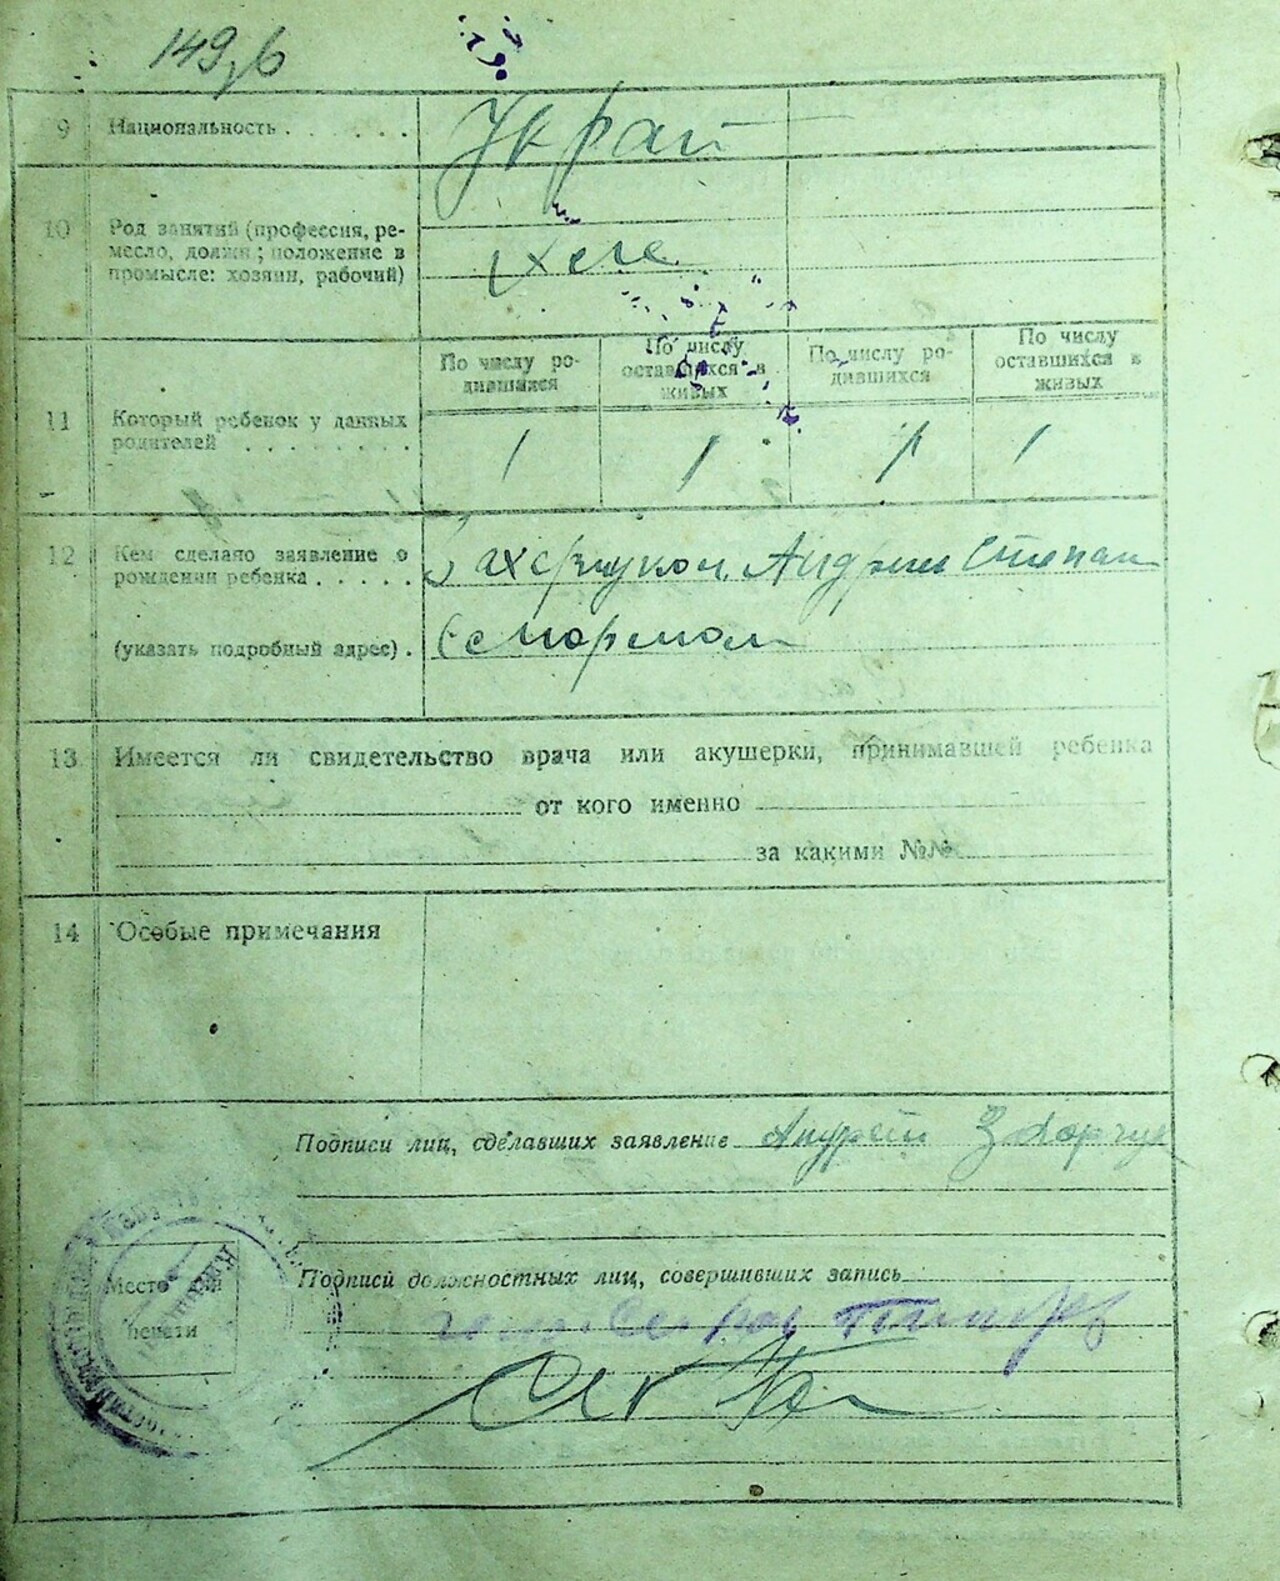 9 Национальность . . . . . . Украй
10 Род занятий (профессия, ре-
месло, должн; положение в
промысле: хозяин, рабочий)
По числу ро-
дившихся
По числу
оставшихся в
живых
По числу ро-
дившихся
По числу
оставшихся в
живых
11 Который ребенок у данных
родителей . . . . . . . . 1 1 1 1
12 Кем сделано заявление о
рождении ребенка . . . . . Захарчуком Андрием Степан
(указать подробный адрес) .
13 Имеется ли свидетельство врача или акушерки, принимавшей ребенка
от кого именно
за какими №№
14 Особые примечания
Подписи лиц, сделавших заявление Андрей Захарчук
Подписи должностных лиц, совершивших запись
Место для
печати